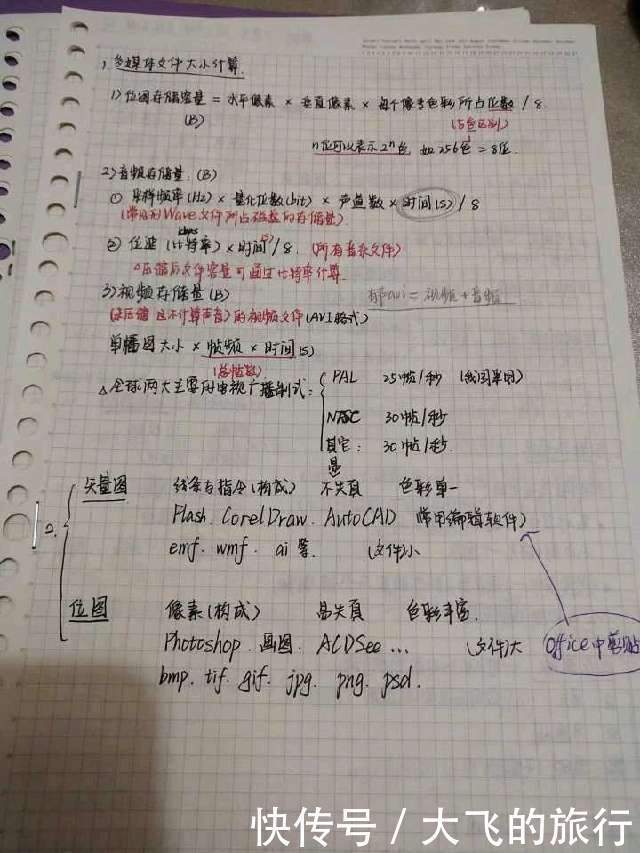 1、多媒体文件大小计算.
1)位图存储容量 = 水平像素 × 垂直像素 × 每个像素色彩所占位数 / 8
(B)
(与色区别)
n位可以表示2ⁿ色 如256色=8位.
2)音频存储量.(B)
① 采样频率(Hz) × 量化位数(bit) × 声道数 × 时间(S) / 8
(常用于Wave文件所占磁盘的存储量)
② 位速(比特率) × 时间(S) / 8. (所有音乐文件)
压缩后文件容量可通过比特率计算.
3)视频存储量(B)
有声avi = 视频+音频
(未压缩 且不计算声音)的视频文件(AVI格式)
单幅图大小 × 帧频 × 时间(S)
(总帧数)
△全球两大主要的电视广播制式:
PAL 25帧/秒 (我国采用)
NTSC 30帧/秒
其它: 30帧/秒.
2. 矢量图 线条与指令(构成) 不失真 色彩单一
Flash. CorelDraw. AutoCAD (常用编辑软件)
emf. wmf. ai 等. (文件小
位图 像素(构成) 易失真 色彩丰富.
Photoshop. 画图. ACDSee ... (文件)大 Office中剪贴
bmp. tif. gif. jpg. png. psd.
快传号 / 大飞的旅行